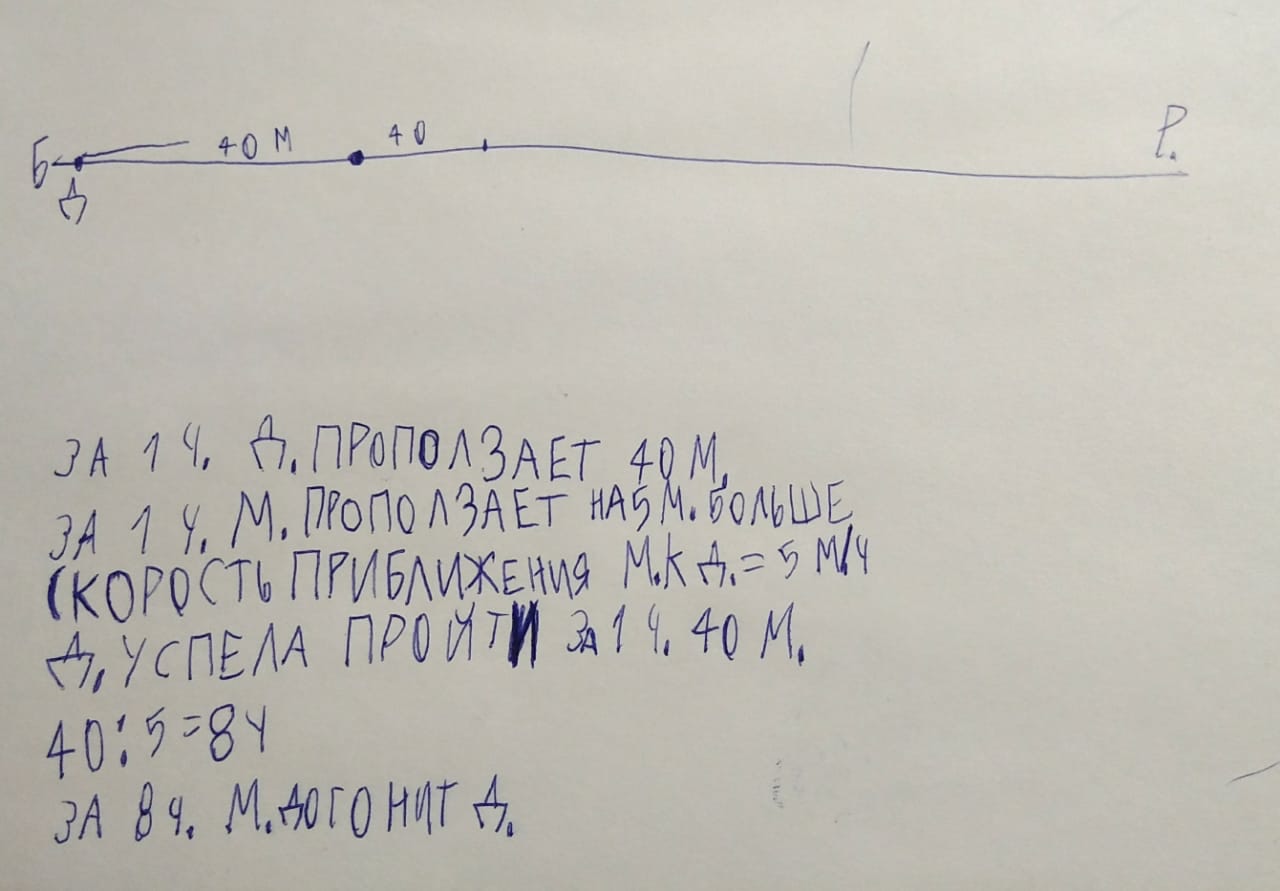 Б 40 М 40 Р.
Д
ЗА 1 Ч. Д. ПРОПОЛЗАЕТ 40 М.
ЗА 1 Ч. М. ПРОПОЛЗАЕТ НА 5 М. БОЛЬШЕ
СКОРОСТЬ ПРИБЛИЖЕНИЯ М. К Д. = 5 М/Ч
Д. УСПЕЛА ПРОЙТИ ЗА 1 Ч. 40 М.
40 : 5 = 8 Ч
ЗА 8 Ч. М. ДОГОНИТ Д.